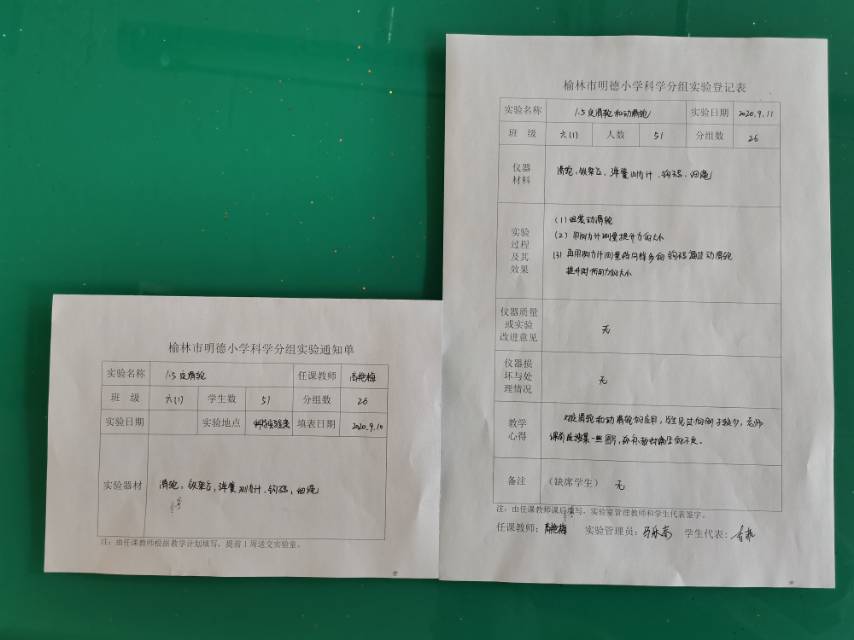 榆林市明德小学科学分组实验通知单
实验名称 1.5定滑轮 任课教师 高艳梅
班 级 六(1) 学生数 51 分组数 26
实验日期 实验地点 科学实验室 填表日期 2020.9.10
实验器材 滑轮、铁架台、弹簧测力计、钩码、细绳
注：由任课教师根据教学计划填写，提前1周送交实验室。
榆林市明德小学科学分组实验登记表
实验名称 1.5定滑轮和动滑轮 实验日期 2020.9.11
班 级 六(1) 人数 51 分组数 26
仪器
材料
滑轮、铁架台、弹簧测力计、钩码、细绳
实验
过程
及其
效果
(1) 组装动滑轮
(2) 用测力计测量提升力的大小
(3) 再用测力计测量将同样多的钩码通过动滑轮
提升时所用力的大小
仪器质量
或实验
改进意见
无
仪器损
坏与处
理情况
无
教学
心得
对定滑轮和动滑轮的应用，学生见过的例子较少，老师
课前应搜集一些图
备注 （缺席学生） 无
注：由任课教师课后填写，实验室管理教师和学生代表签字。
任课教师：高艳梅 实验管理员： 学生代表：